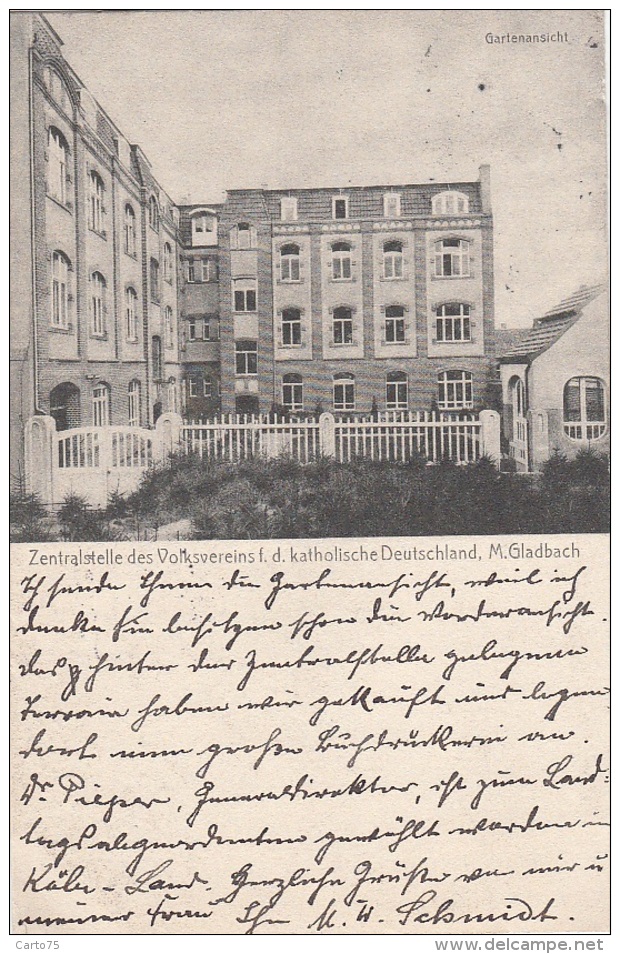 Gartenansicht
Zentralstelle des Volksvereins f. d. katholische Deutschland, M. Gladbach
Ich sende Ihnen die Gartenansicht, weil ich
denke Sie besitzen schon die Vorderansicht.
Das hinter der Zentralstelle gelegene
Terrain haben wir gekauft und legen
dort eine große Buchdruckerei an.
Dr Pieper, Generaldirektor, ist zum Land=
tagsabgeordneten gewählt worden in
Köln-Land. Herzliche Grüße von mir u
meiner Frau Ihr M. W. Schmidt.
Carto75
www.delcampe.net